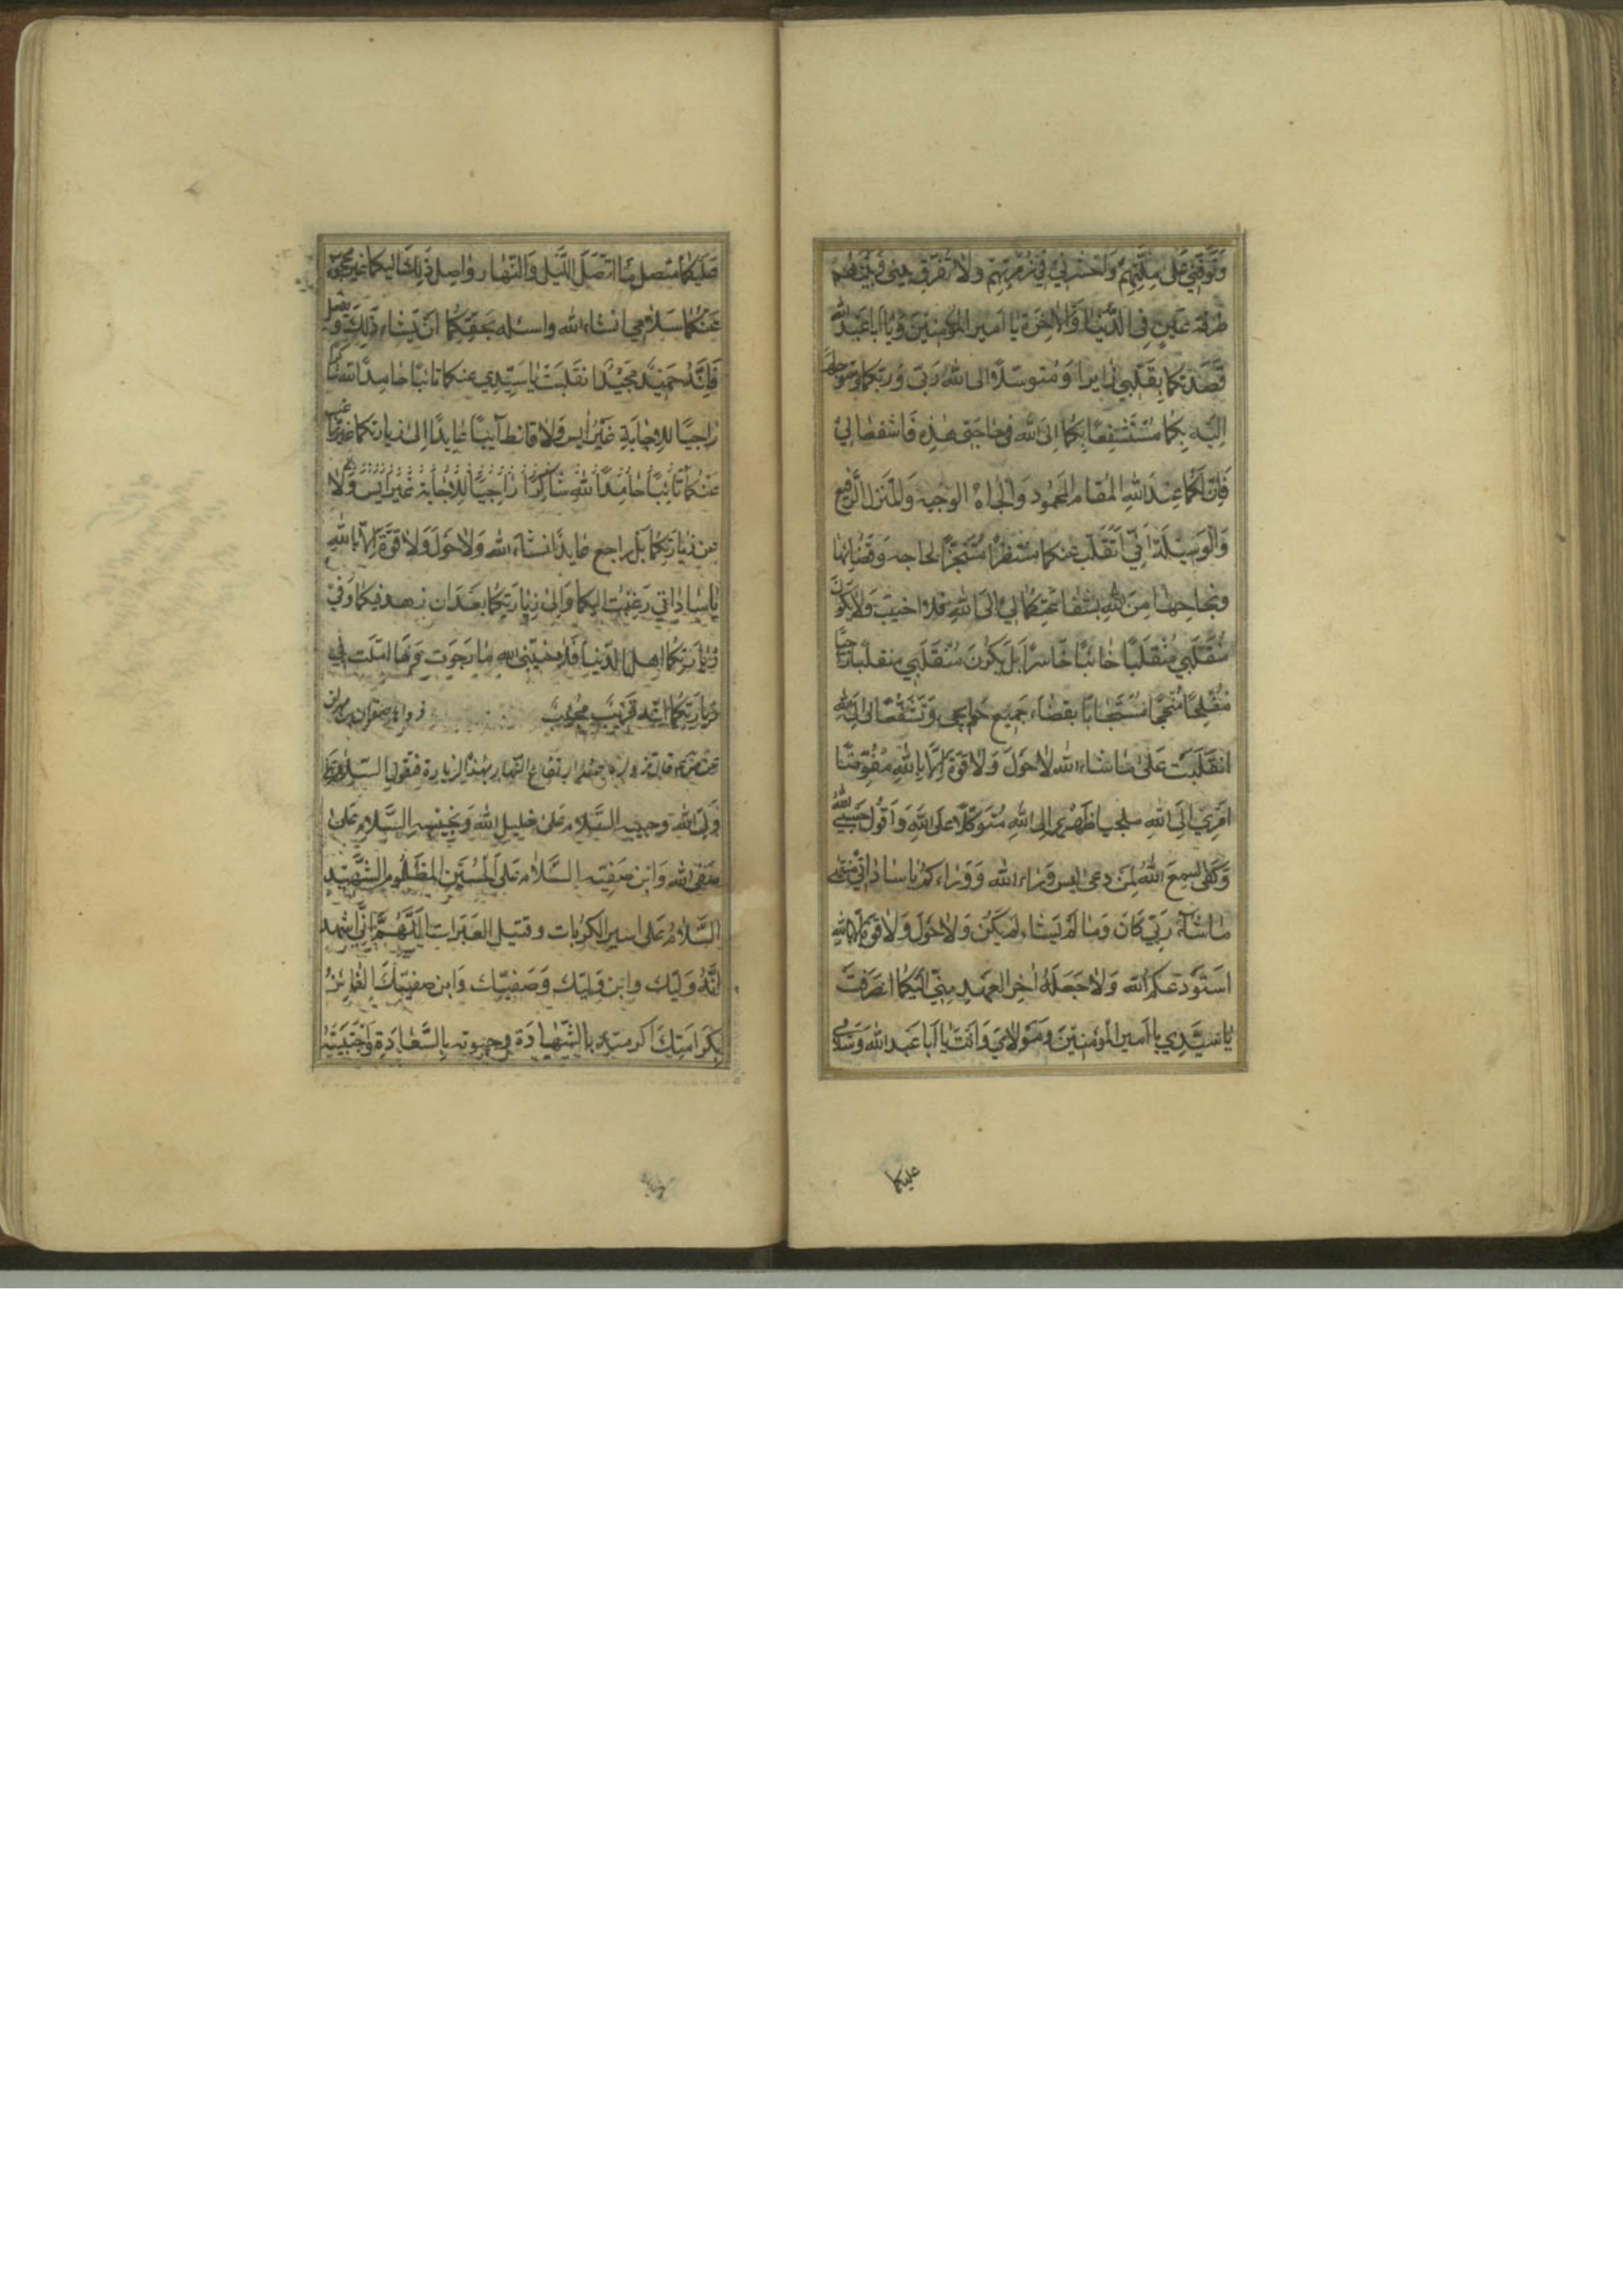 وَتَوَفَّنِي عَلَى مِلَّتِهِمْ وَاحْشُرْنِي فِي زُمْرَتِهِمْ وَلَا تُفَرِّقْ بَيْنِي وَبَيْنَهُمْ
طَرْفَةَ عَيْنٍ فِي الدُّنْيَا وَالْآخِرَةِ يَا أَمِيرَ الْمُؤْمِنِينَ وَيَا أَبَا عَبْدِ اللهِ
قَصَدْتُكُمَا بِقَلْبِي زَايِرًا وَمُتَوَسِّلًا إِلَى اللهِ رَبِّي وَرَبِّكُمَا وَمُتَوَجِّهًا
إِلَيْهِ بِكُمَا مُسْتَشْفِعًا بِكُمَا إِلَى اللهِ فِي حَاجَتِي هٰذِهِ فَاشْفَعَا لِي
فَإِنَّ لَكُمَا عِنْدَ اللهِ الْمَقَامَ الْمَحْمُودَ وَالْجَاهَ الْوَجِيهَ وَالْمَنْزِلَ الرَّفِيعَ
وَالْوَسِيلَةَ إِنِّي أَنْقَلِبُ عَنْكُمَا مُنْتَظِرًا مُتَنَجِّزًا لِحَاجَةِ وَقَضَائِهَا
وَنَجَاحِهَا مِنَ اللهِ بِشَفَاعَتِكُمَا لِي إِلَى اللهِ فَلَا أَخِيبُ وَلَا يَكُونُ
مُنْقَلَبِي مُنْقَلَبًا خَائِبًا خَاسِرًا بَلْ يَكُونُ مُنْقَلَبِي مُنْقَلَبًا رَاجِيًا
مُفْلِحًا مُنْجِحًا مُسْتَجَابًا بِقَضَاءِ جَمِيعِ حَوَائِجِي وَتَشْفَعَا لِي إِلَى اللهِ
انْقَلَبْتُ عَلَى مَا شَاءَ اللهُ لَا حَوْلَ وَلَا قُوَّةَ إِلَّا بِاللهِ مُفَوِّضًا
أَمْرِي إِلَى اللهِ مُلْجِيًا ظَهْرِي إِلَى اللهِ مُتَوَكِّلًا عَلَى اللهِ وَأَقُولُ حَسْبِيَ اللهُ
وَكَفَى سَمِعَ اللهُ لِمَنْ دَعَى لَيْسَ وَرَاءَ اللهِ وَوَرَاءَكُمْ يَا سَادَاتِي مُنْتَهَى
مَا شَاءَ رَبِّي كَانَ وَمَا لَمْ يَشَاءْ لَمْ يَكُنْ وَلَا حَوْلَ وَلَا قُوَّةَ إِلَّا بِاللهِ
أَسْتَوْدِعُكُمُ اللهَ وَلَا جَعَلَهُ آخِرَ الْعَهْدِ مِنِّي إِلَيْكُمَا انْصَرَفْتُ
يَا سَيِّدِي يَا أَمِيرَ الْمُؤْمِنِينَ وَمَوْلَايَ وَأَنْتَ يَا أَبَا عَبْدِ اللهِ وَسَلَامِي
عليكما
عَلَيْكُمَا مُتَّصِلٌ مَا اتَّصَلَ اللَّيْلُ وَالنَّهَارُ وَاصِلٌ ذٰلِكَ إِلَيْكُمَا غَيْرُ مَحْجُوبٍ
عَنْكُمَا سَلَامِي انْشَاءَ اللهُ وَاسْئَلُهُ بِحَقِّكُمَا أَنْ يَشَاءَ ذٰلِكَ وَيَفْعَلَ
فَإِنَّهُ حَمِيدٌ مَجِيدٌ انْقَلَبْتُ يَا سَيِّدِي عَنْكُمَا تَائِبًا حَامِدًا لِلهِ شَاكِرًا
رَاجِيًا لِلْإِجَابَةِ غَيْرَ آيِسٍ وَلَا قَانِطٍ آيِبًا عَايِدًا إِلَى زِيَارَتِكُمَا غَيْرَ رَاغِبٍ
عَنْكُمَا تَائِبًا حَامِدًا لِلهِ شَاكِرًا رَاجِيًا لِلْإِجَابَةِ غَيْرَ آيِسٍ وَلَا
مِنْ زِيَارَتِكُمَا بَلْ رَاجِعٌ عَايِدٌ انْشَاءَ اللهُ وَلَا حَوْلَ وَلَا قُوَّةَ إِلَّا بِاللهِ
يَا سَادَاتِي رَغِبْتُ إِلَيْكُمَا وَإِلَى زِيَارَتِكُمَا بَعْدَ أَنْ زَهِدَ فِيكُمَا وَفِي
زِيَارَتِكُمَا أَهْلُ الدُّنْيَا فَلَا خَيَّبَنِي اللهُ مَا رَجَوْتُ وَمَا أَمَّلْتُ فِي
زِيَارَتِكُمَا إِنَّهُ قَرِيبٌ مُجِيبٌ
السَّلَامُ عَلَى
وَلِيِّ اللهِ وَحَبِيبِهِ السَّلَامُ عَلَى خَلِيلِ اللهِ وَنَجِيبِهِ السَّلَامُ عَلَى
صَفِيِّ اللهِ وَابْنِ صَفِيِّهِ السَّلَامُ عَلَى الْحُسَيْنِ الْمَظْلُومِ الشَّهِيدِ
السَّلَامُ عَلَى أَسِيرِ الْكُرُبَاتِ وَقَتِيلِ الْعَبَرَاتِ اللّٰهُمَّ إِنِّي أَشْهَدُ
أَنَّهُ وَلِيُّكَ وَابْنُ وَلِيِّكَ وَصَفِيُّكَ وَابْنُ صَفِيِّكَ الْفَائِزُ
بِكَرَامَتِكَ أَكْرَمْتَهُ بِالشَّهَادَةِ وَحَبَوْتَهُ بِالسَّعَادَةِ وَاجْتَبَيْتَهُ